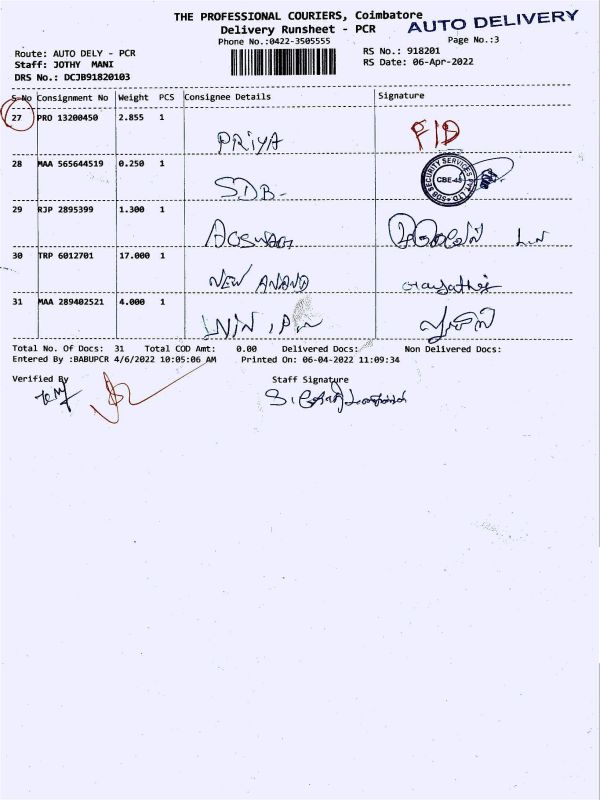 THE PROFESSIONAL COURIERS, Coimbatore
AUTO DELIVERY
Delivery Runsheet - PCR
Phone No.:0422-3505555
Page No.:3
Route: AUTO DELY - PCR
RS No.: 918201
Staff: JOTHY MANI
RS Date: 06-Apr-2022
DRS No.: DCJB91820103
S-No Consignment No Weight PCS Consignee Details Signature
27 PRO 13200450 2.855 1
PRIYA
28 MAA 565644519 0.250 1
SDB-
SDB SECURITY SERVICES PVT LTD
CBE-45
29 RJP 2895399 1.300 1
30 TRP 6012701 17.000 1
NEW ANAND
31 MAA 289402521 4.000 1
Total No. Of Docs: 31 Total COD Amt: 0.00 Delivered Docs: Non Delivered Docs:
Entered By :BABUPCR 4/6/2022 10:05:06 AM Printed On: 06-04-2022 11:09:34
Verified By Staff Signature